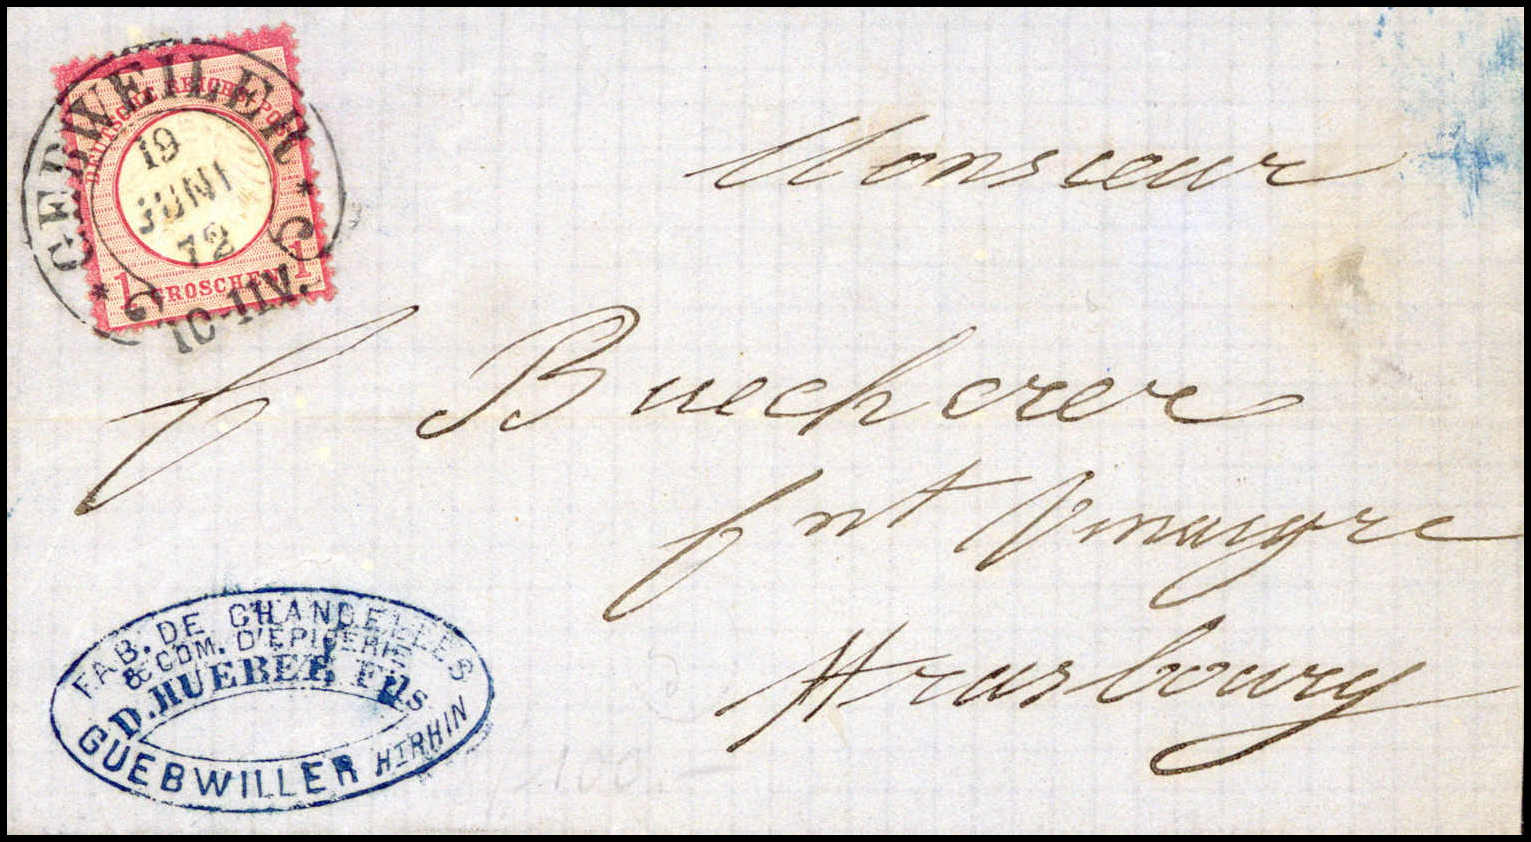 GEBWEILER
DEUTSCHE REICHS-POST
19
JUNI
72
1 GROSCHEN 1
10-11V.
Monsieur
f Buecherer
fnt Vinaigre
Strasbourg
FAB. DE CHANDELLES
& COM. D'EPICERIE
D. HUEBER FILS
GUEBWILLER HT RHIN
2100.-